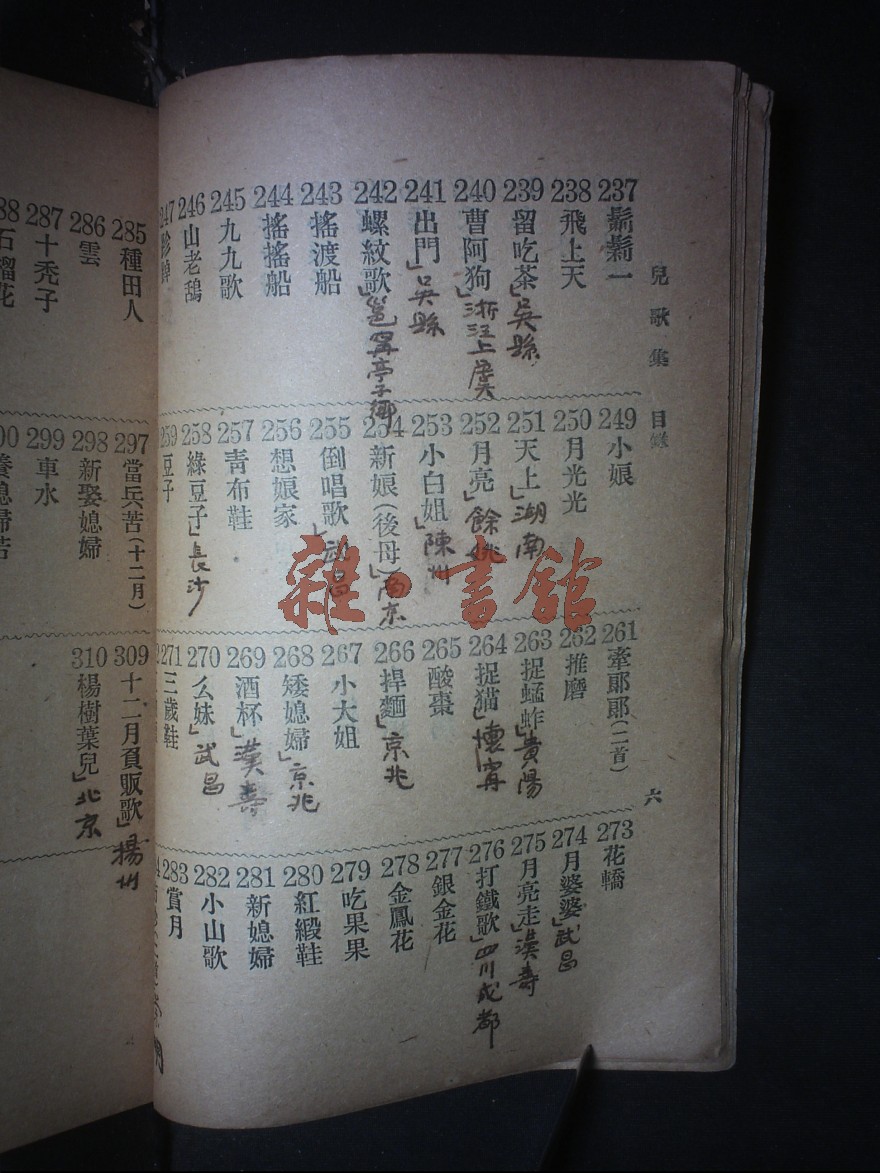 兒歌集 目錄 六
237 鬅鬅一
238 飛上天
239 留吃茶」吳縣
240 曹阿狗」浙江上虞
241 出門」吳縣
242 螺紋歌」邕甯亭子鄉
243 搖渡船
244 搖搖船
245 九九歌
246 山老鴰
249 小娘
250 月光光
251 天上」湖南
252 月亮」餘姚
253 小白姐」陳州
254 新娘(後母)」南京
255 倒唱歌」武昌
256 想娘家
257 青布鞋
258 綠豆子」長沙
259 豆子
261 牽郎郎(二首)
262 推磨
263 捉蜢蚱」貴陽
264 捉猫」懷甯
265 酸棗
266 捍麵」京兆
267 小大姐
268 矮媳婦」京兆
269 酒杯」漢壽
270 么妹」武昌
271 三歲鞋
273 花轎
274 月婆婆」武昌
275 月亮走」漢壽
276 打鐵歌」四川成都
277 銀金花
278 金鳳花
279 吃果果
280 紅緞鞋
281 新媳婦
282 小山歌
283 賞月
285 種田人
286 雲
287 十禿子
石榴花
297 當兵苦(十二月)
298 新娶媳婦
299 車水
309 十二月負販歌」揚州
310 楊樹葉兒」北京
雜·書館